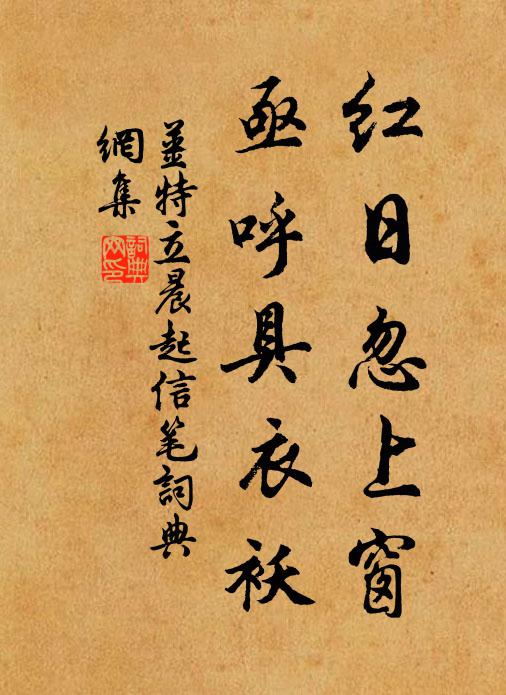 红日忽上窗
亟呼具衣袄
姜特立晨起信笔詞典
網集
詞典网印